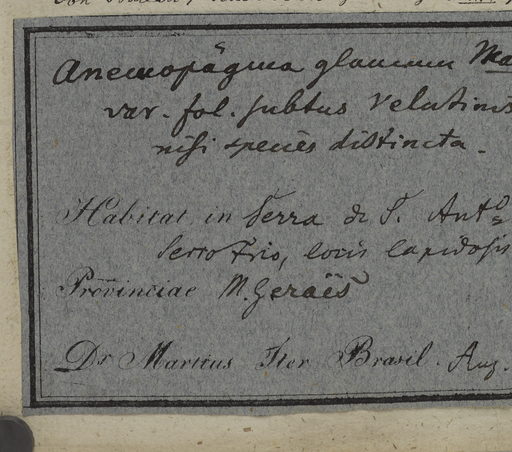 Anemopægma glaucum Ma
var. fol. subtus velutinis
nisi species distincta.
Habitat in Serra de S. Antº
Serro Frio, locis lapidosis
Provinciae M. Geraës
Dr Martius Iter Brasil. Aug.